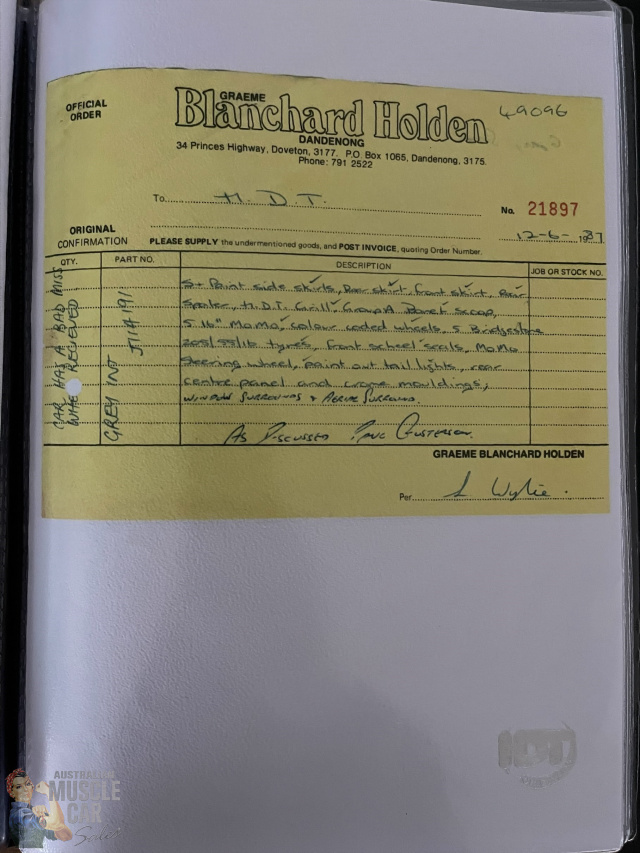 OFFICIAL
ORDER
GRAEME
Blanchard Holden
DANDENONG
34 Princes Highway, Doveton, 3177. P.O. Box 1065, Dandenong, 3175.
Phone: 791 2522
49096
To H. D. T.
No. 21897
12-6-1987
ORIGINAL
CONFIRMATION
PLEASE SUPPLY the undermentioned goods, and POST INVOICE, quoting Order Number.
QTY.
PART NO.
DESCRIPTION
JOB OR STOCK NO.
CAR HAS A BAD MISS
WHEN RECIEVED
GREY INT
Paint side skirts, Rear skirt, front skirt, Rear
Spoiler, H.D.T. Grill, Group A Bonet Scoop,
5 16" MoMo, colour coded wheels, 5 Bridgestone
205/55/16 tyres, front scheel seats, MoMo
Steering wheel, paint out tail lights, rear
centre panel and crome mouldings,
WINDOW SURROUNDS & AERIAL SURROUND.
AS DISCUSSED
GRAEME BLANCHARD HOLDEN
Per Wylie.
HDT
AUSTRALIAN
MUSCLE
CAR
Sales